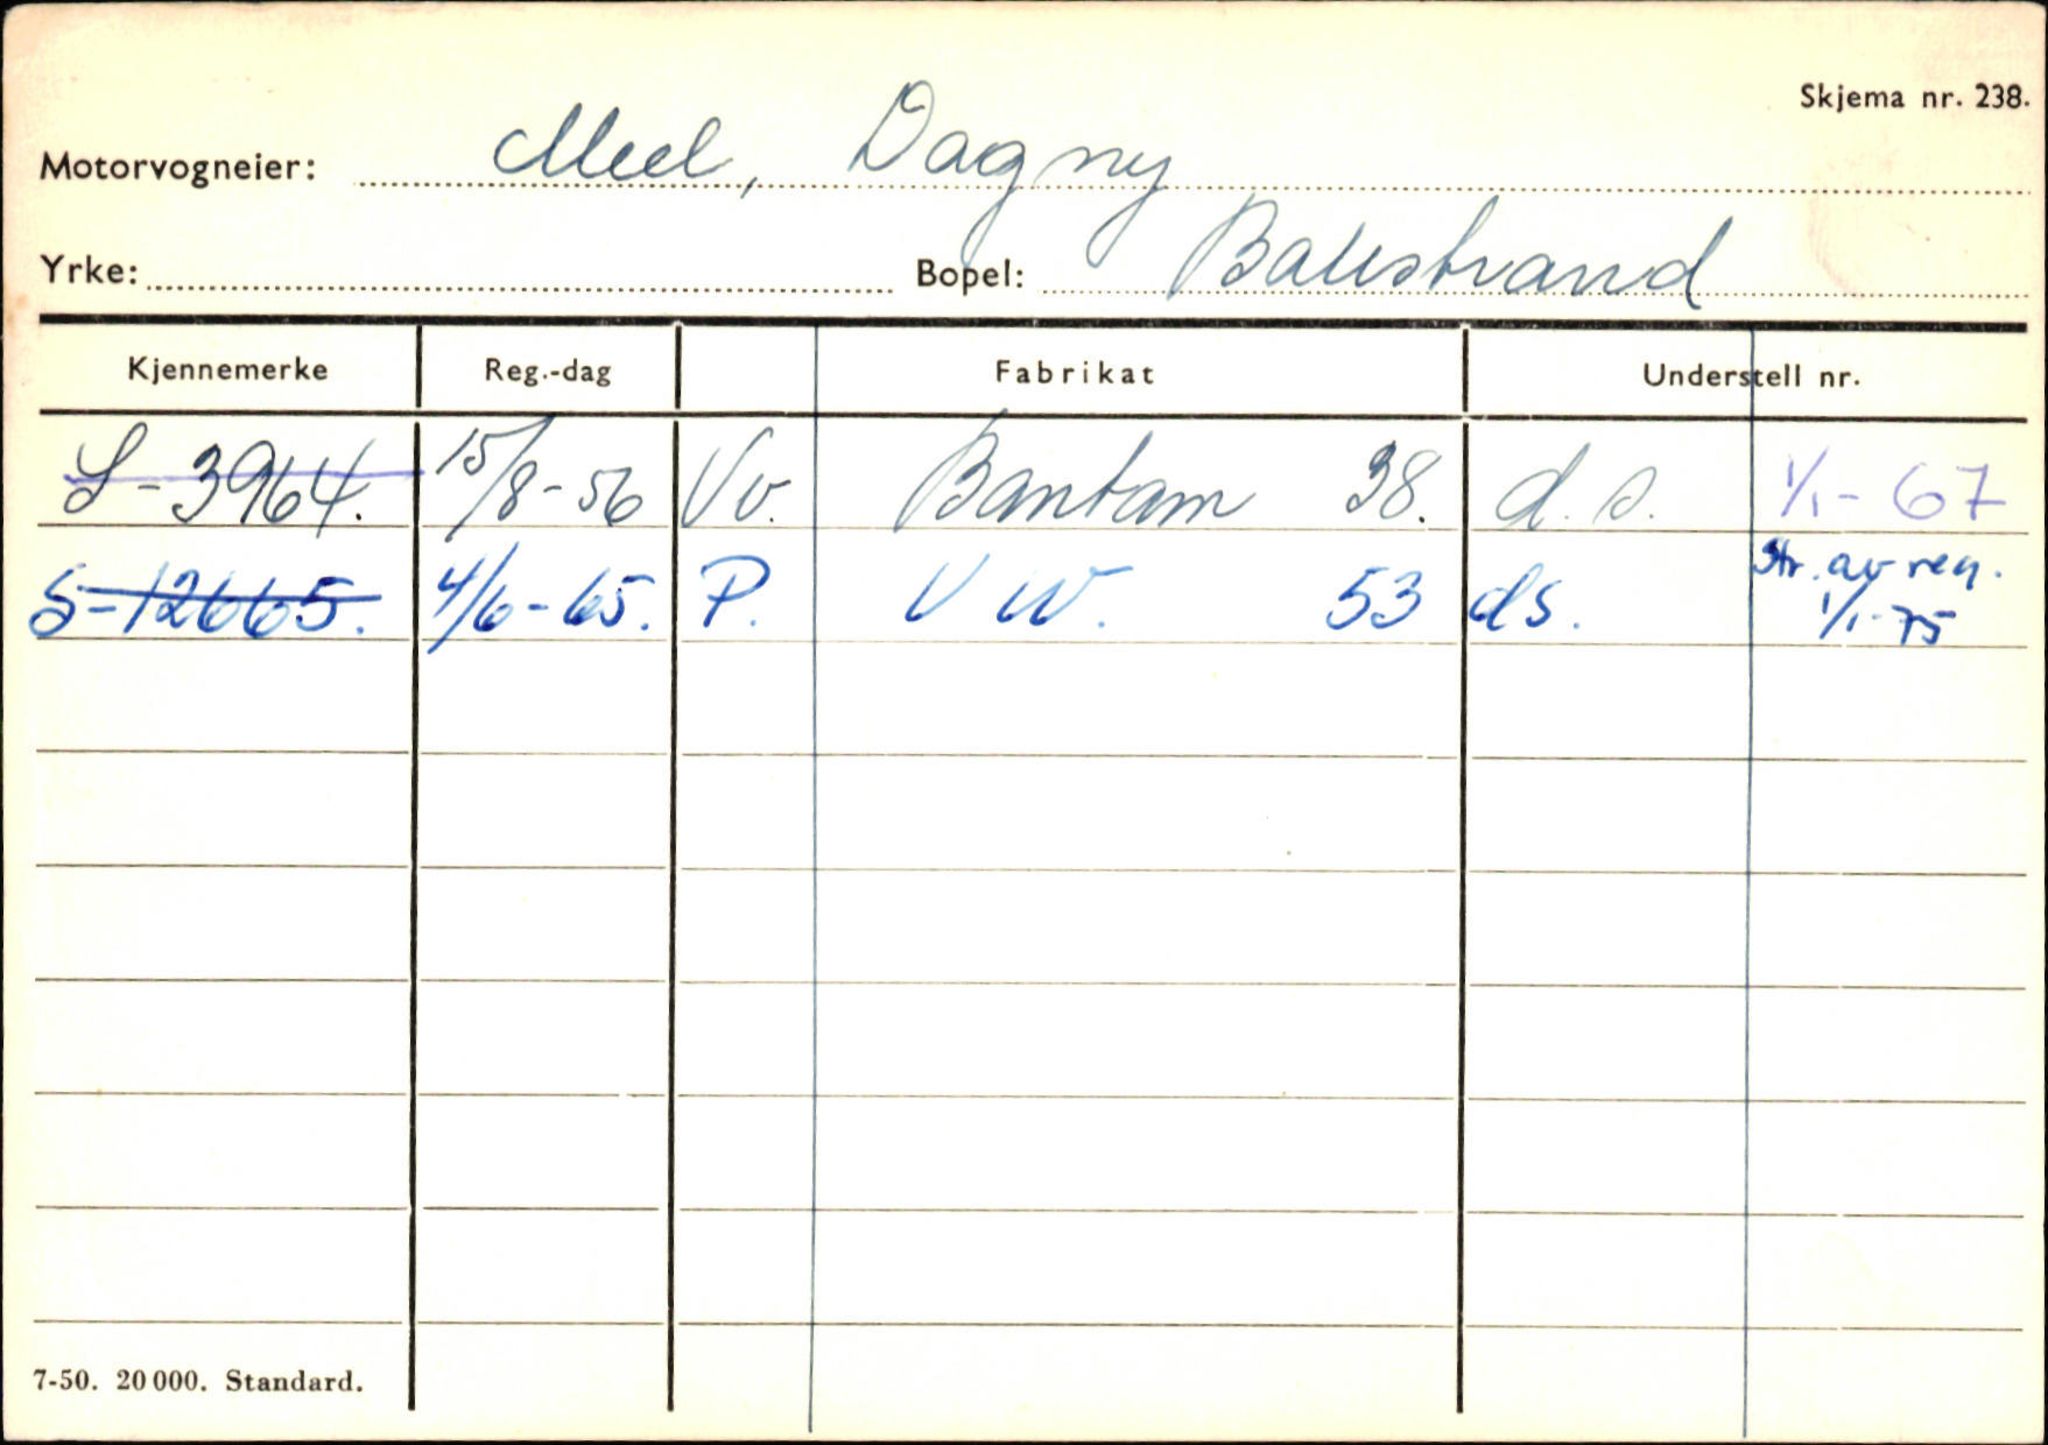 Skjema nr. 238.
Motorvogneier: Meel, Dagny
Yrke: Bopel: Balestrand
Kjennemerke Reg.-dag Fabrikat Understell nr.
S-3964. 15/8-56 Vv. Bantam 38. d.s. 1/1-67
S-12665. 4/6-65. P. VW. 53 ds. Str. av reg. 1/1-75
7-50. 20000. Standard.